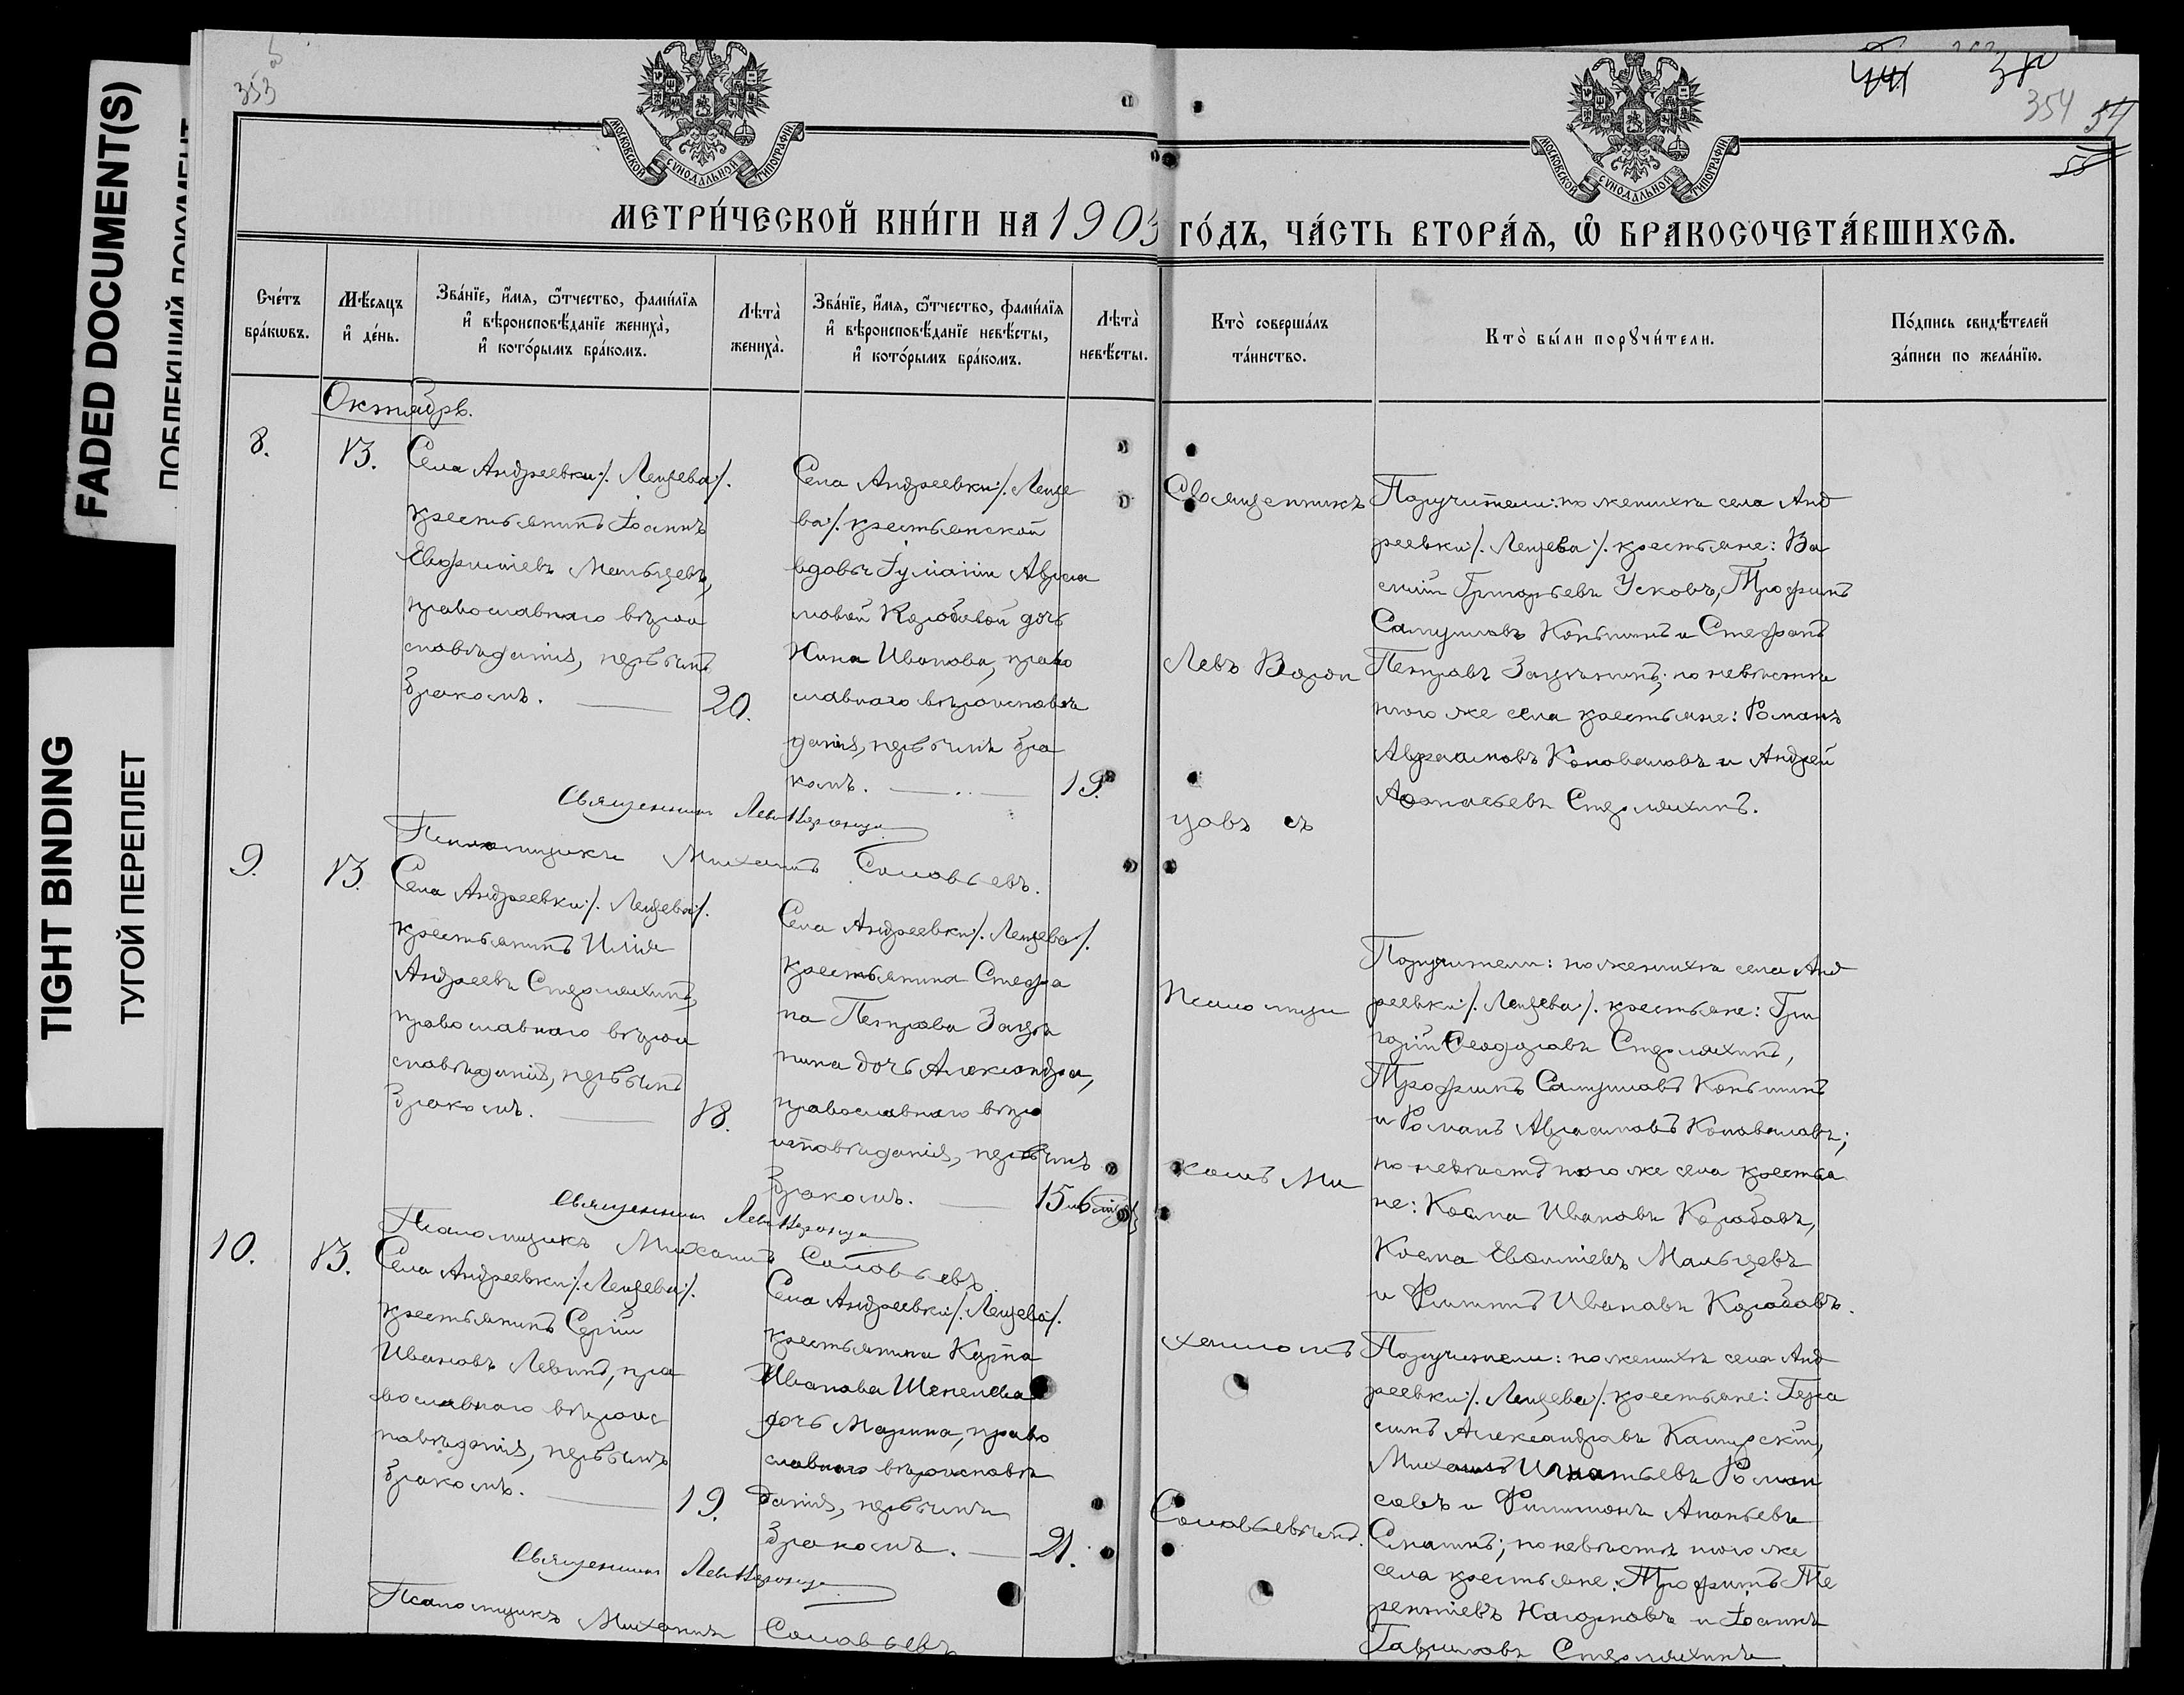 FADED DOCUMENT(S)
TIGHT BINDING
ТУГОЙ ПЕРЕПЛЕТ
353
380
354
54
МОСКОВСКОЙ СѴНОДАЛЬНОЙ ТИПОГРАФІИ
МОСКОВСКОЙ СѴНОДАЛЬНОЙ ТИПОГРАФІИ
МЕТРИ́ЧЕСКОЙ КНИ́ГИ НА 1903 ГО́ДЪ, ЧА́СТЬ ВТОРА́Ѧ, Ѡ҆ БРАКОСОЧЕТА́ВШИХСѦ.
Сче́тъ бра́кѡвъ.
Мѣ́сяцъ и҆ де́нь.
Зва́нїе, и҆́мѧ, ѻ҆́тчество, фами́лїѧ и҆ вѣроисповѣ́данїе жениха̀, и҆ кото́рымъ бра́комъ.
Лѣта̀ жениха̀.
Зва́нїе, и҆́мѧ, ѻ҆́тчество, фами́лїѧ и҆ вѣроисповѣ́данїе невѣ́сты, и҆ кото́рымъ бра́комъ.
Лѣта̀ невѣ́сты.
Кто̀ соверша́лъ та́инство.
Кто̀ бы́ли порꙋчи́тели.
По́дпись свидѣ́телей за́писи по жела́нїю.
Октябрь.
8.
13.
Села Андреевки /. Лещева /.
крестьянинъ Іоаннъ
Евфиміевъ Мальцевъ,
православнаго вѣрои
сповѣданія, первымъ
бракомъ. — 20.
Села Андреевки /. Леще
ва /. крестьянской
вдовы Іуліаніи Авраа
мовой Коробовой дочь
Нина Иванова, право
славнаго вѣроисповѣ
данія, первымъ бра
комъ. — 19.
Священникъ
Левъ Ворон
цовъ съ
Поручители: по женихѣ села Анд
реевки /. Лещева /. крестьяне: Ва
силій Григорьевъ Усковъ, Трофимъ
Самуиловъ Коньшинъ и Стефанъ
Петровъ Зацѣпинъ; по невѣстѣ
того же села крестьяне: Романъ
Авраамовъ Коноваловъ и Андрей
Аѳанасьевъ Стерляхинъ.
Священникъ Левъ Воронцо
Псаломщикъ Михаилъ Соловьевъ.
9.
13.
Села Андреевки /. Лещева /.
крестьянинъ Илія
Андреевъ Стерляхинъ,
православнаго вѣрои
сповѣданія, первымъ
бракомъ. — 18.
Села Андреевки /. Лещева /.
крестьянина Стефа
на Петрова Зацѣ
пина дочь Александра,
православнаго вѣро
исповѣданія, первымъ
бракомъ. — 15
Псаломщи
комъ Ми
Поручители: по женихѣ села Анд
реевки /. Лещева /. крестьяне: Гри
горій Ѳеодоровъ Стерляхинъ,
Трофимъ Самуиловъ Коньшинъ
и Романъ Авраамовъ Коноваловъ;
по невѣстѣ того же села крестья
не: Косма Ивановъ Коробовъ,
Косма Евѳиміевъ Мальцевъ
и Филиппъ Ивановъ Коробовъ.
Священникъ Левъ Воронцо
Псаломщикъ Михаилъ Соловьевъ
10.
13.
Села Андреевки /. Лещева /.
крестьянинъ Сергій
Ивановъ Левинъ, пра
вославнаго вѣроис
повѣданія, первымъ
бракомъ. — 19.
Села Андреевки /. Лещева /.
крестьянина Карпа
Иванова Шепелева
дочь Марина, право
славнаго вѣроисповѣ
данія, первымъ
бракомъ. — 21.
хаиломъ
Соловьевымъ.
Поручители: по женихѣ села Анд
реевки /. Лещева /. крестьяне: Гера
симъ Александровъ Каширскій,
Михаилъ Игнатьевъ Роман
совъ и Филимонъ Ананьевъ
по невѣстѣ того же
села крестьяне: Трофимъ Те
рентіевъ Нагорновъ и Іоаннъ
Гавриловъ Стерляхинъ.
Священникъ Левъ Воронцо
Псаломщикъ Михаилъ Соловьевъ